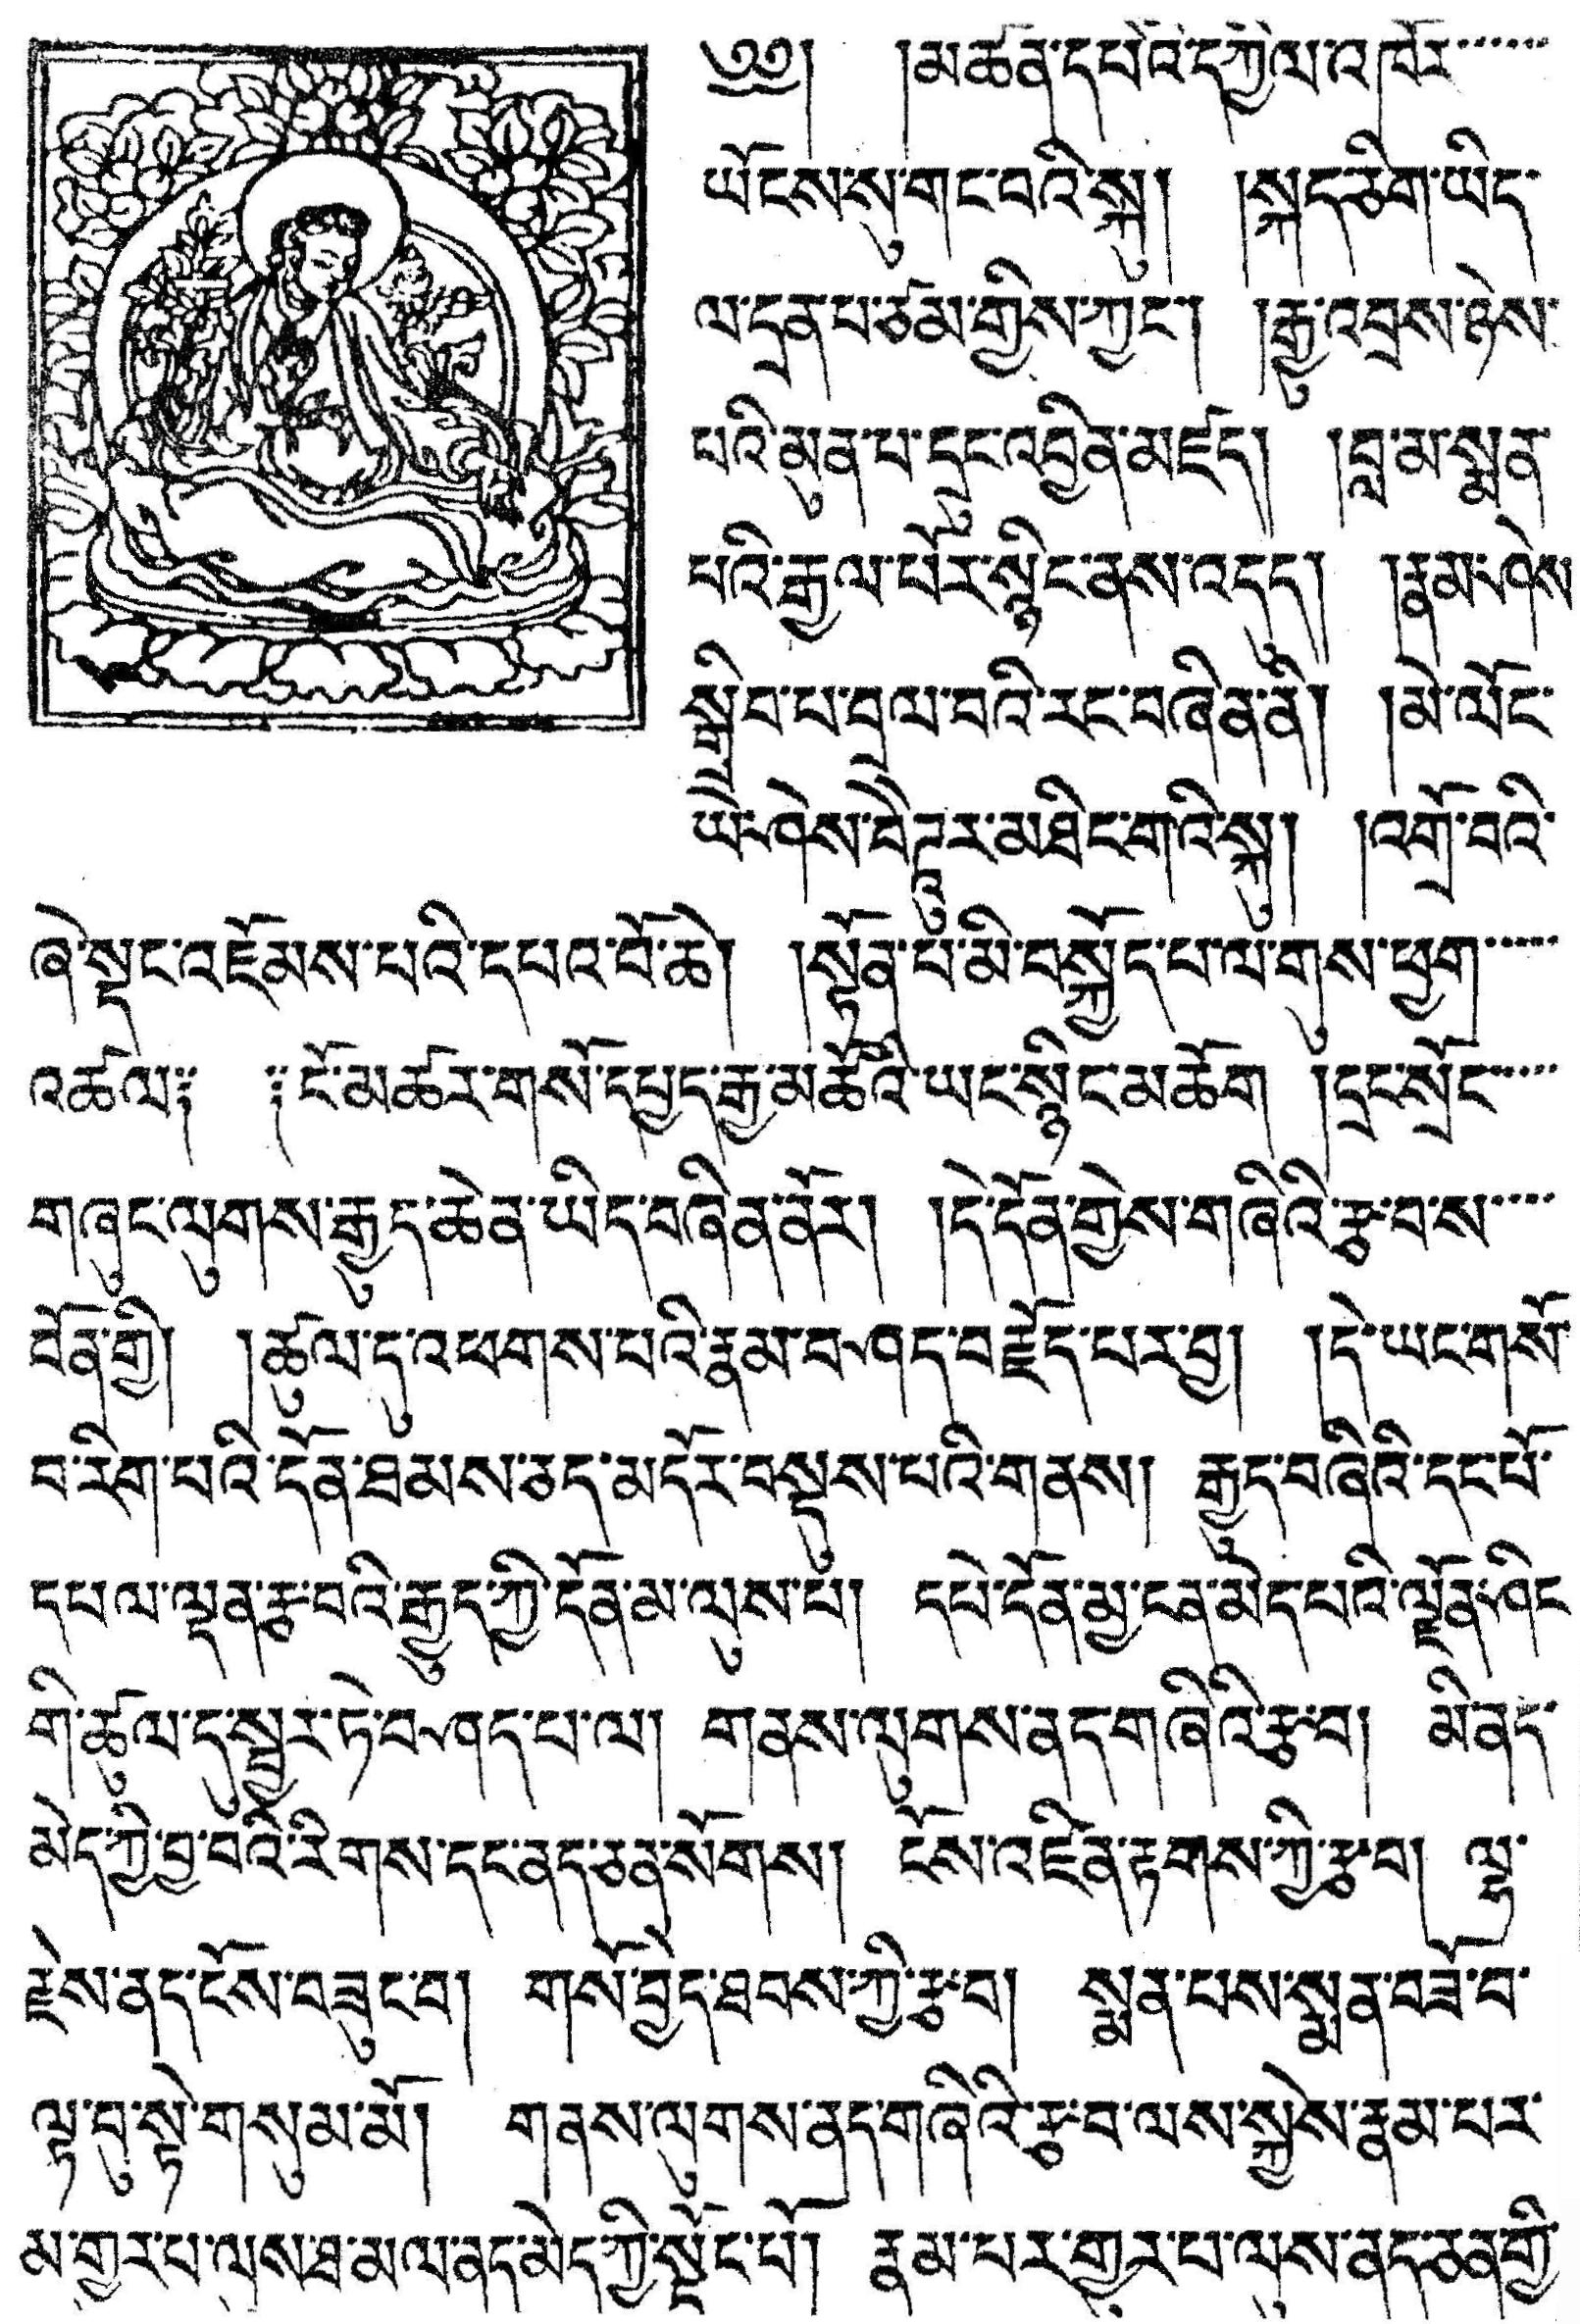 ༄༅། །མཚན་དཔེའི་དཀྱིལ་འཁོར་་་་་་
ཡོངས་སུ་གང་བའི་སྐུ། །སྐད་ཅིག་ཡིད་
ལ་དྲན་པ་ཙམ་གྱིས་ཀྱང་། །རྒྱུ་འབྲས་ཉེས་
པའི་མུན་པ་དྲུང་འབྱིན་མཛད། །བླ་མ་སྨན་
པའི་རྒྱལ་པོར་སྙིང་ནས་འདུད། །རྣམ་ཤེས་
སྒྲིབ་པ་བྲལ་བའི་རང་བཞིན་ནི། །མེ་ལོང་
ཡེ་ཤེས་བཻཌཱུར་མཐིང་གའི་སྐུ། །འགྲོ་བའི་
ཞེ་སྡང་འཇོམས་པའི་དཔའ་བོ་ཆེ། །སྟོན་པ་མི་བསྐྱོད་པ་ལ་གུས་ཕྱག་་་་་་
འཚལ༔ ༔ངོ་མཚར་གསོ་དཔྱད་རྒྱ་མཚོའི་ཡང་སྙིང་མཆོག །དྲང་སྲོང་་་་་་
གཞུང་ལུགས་རྒྱུད་ཆེན་ཡིད་བཞིན་ནོར། །དེ་དོན་གྱེས་གཞིའི་རྩ་བ་ས་་་་་
བོན་གྱི། །ཚུལ་དུ་འཕགས་པའི་རྣམ་བཤད་བརྗོད་པར་བྱ། །དེ་ཡང་གསོ་
བ་རིག་པའི་དོན་ཐམས་ཅད་མདོར་བསྡུས་པའི་གནས། རྒྱུད་བཞིའི་དང་པོ་
དཔལ་ལྡན་རྩ་བའི་རྒྱུད་ཀྱི་དོན་མ་ལུས་པ། དཔེ་དོན་མྱ་ངན་མེད་པའི་ལྗོན་ཤིང་
གི་ཚུལ་དུ་སྦྱར་ཏེ་བཤད་པ་ལ། གནས་ལུགས་ནད་གཞིའི་རྩ་བ། མི་ནད་
མེད་ཀྱི་བྱ་བའི་རིགས་དང་ནད་ཅན་སོགས། ངོས་འཛིན་རྟགས་ཀྱི་རྩ་བ། ལྷ་
རྗེས་ནད་ངོས་བཟུང་བ། གསོ་བྱེད་ཐབས་ཀྱི་རྩ་བ། སྨན་པས་སྨན་བཟོ་བ་
ལྟ་བུ་སྟེ་གསུམ་མོ། གནས་ལུགས་ནད་གཞིའི་རྩ་བ་ལས་སྐྱེས་རྣམ་པར་
མ་གྱུར་པ་ལུས་ཐ་མལ་ནད་མེད་ཀྱི་སྡོང་པོ། རྣམ་པར་གྱུར་པ་ལུས་ནད་ཅན་གྱི་